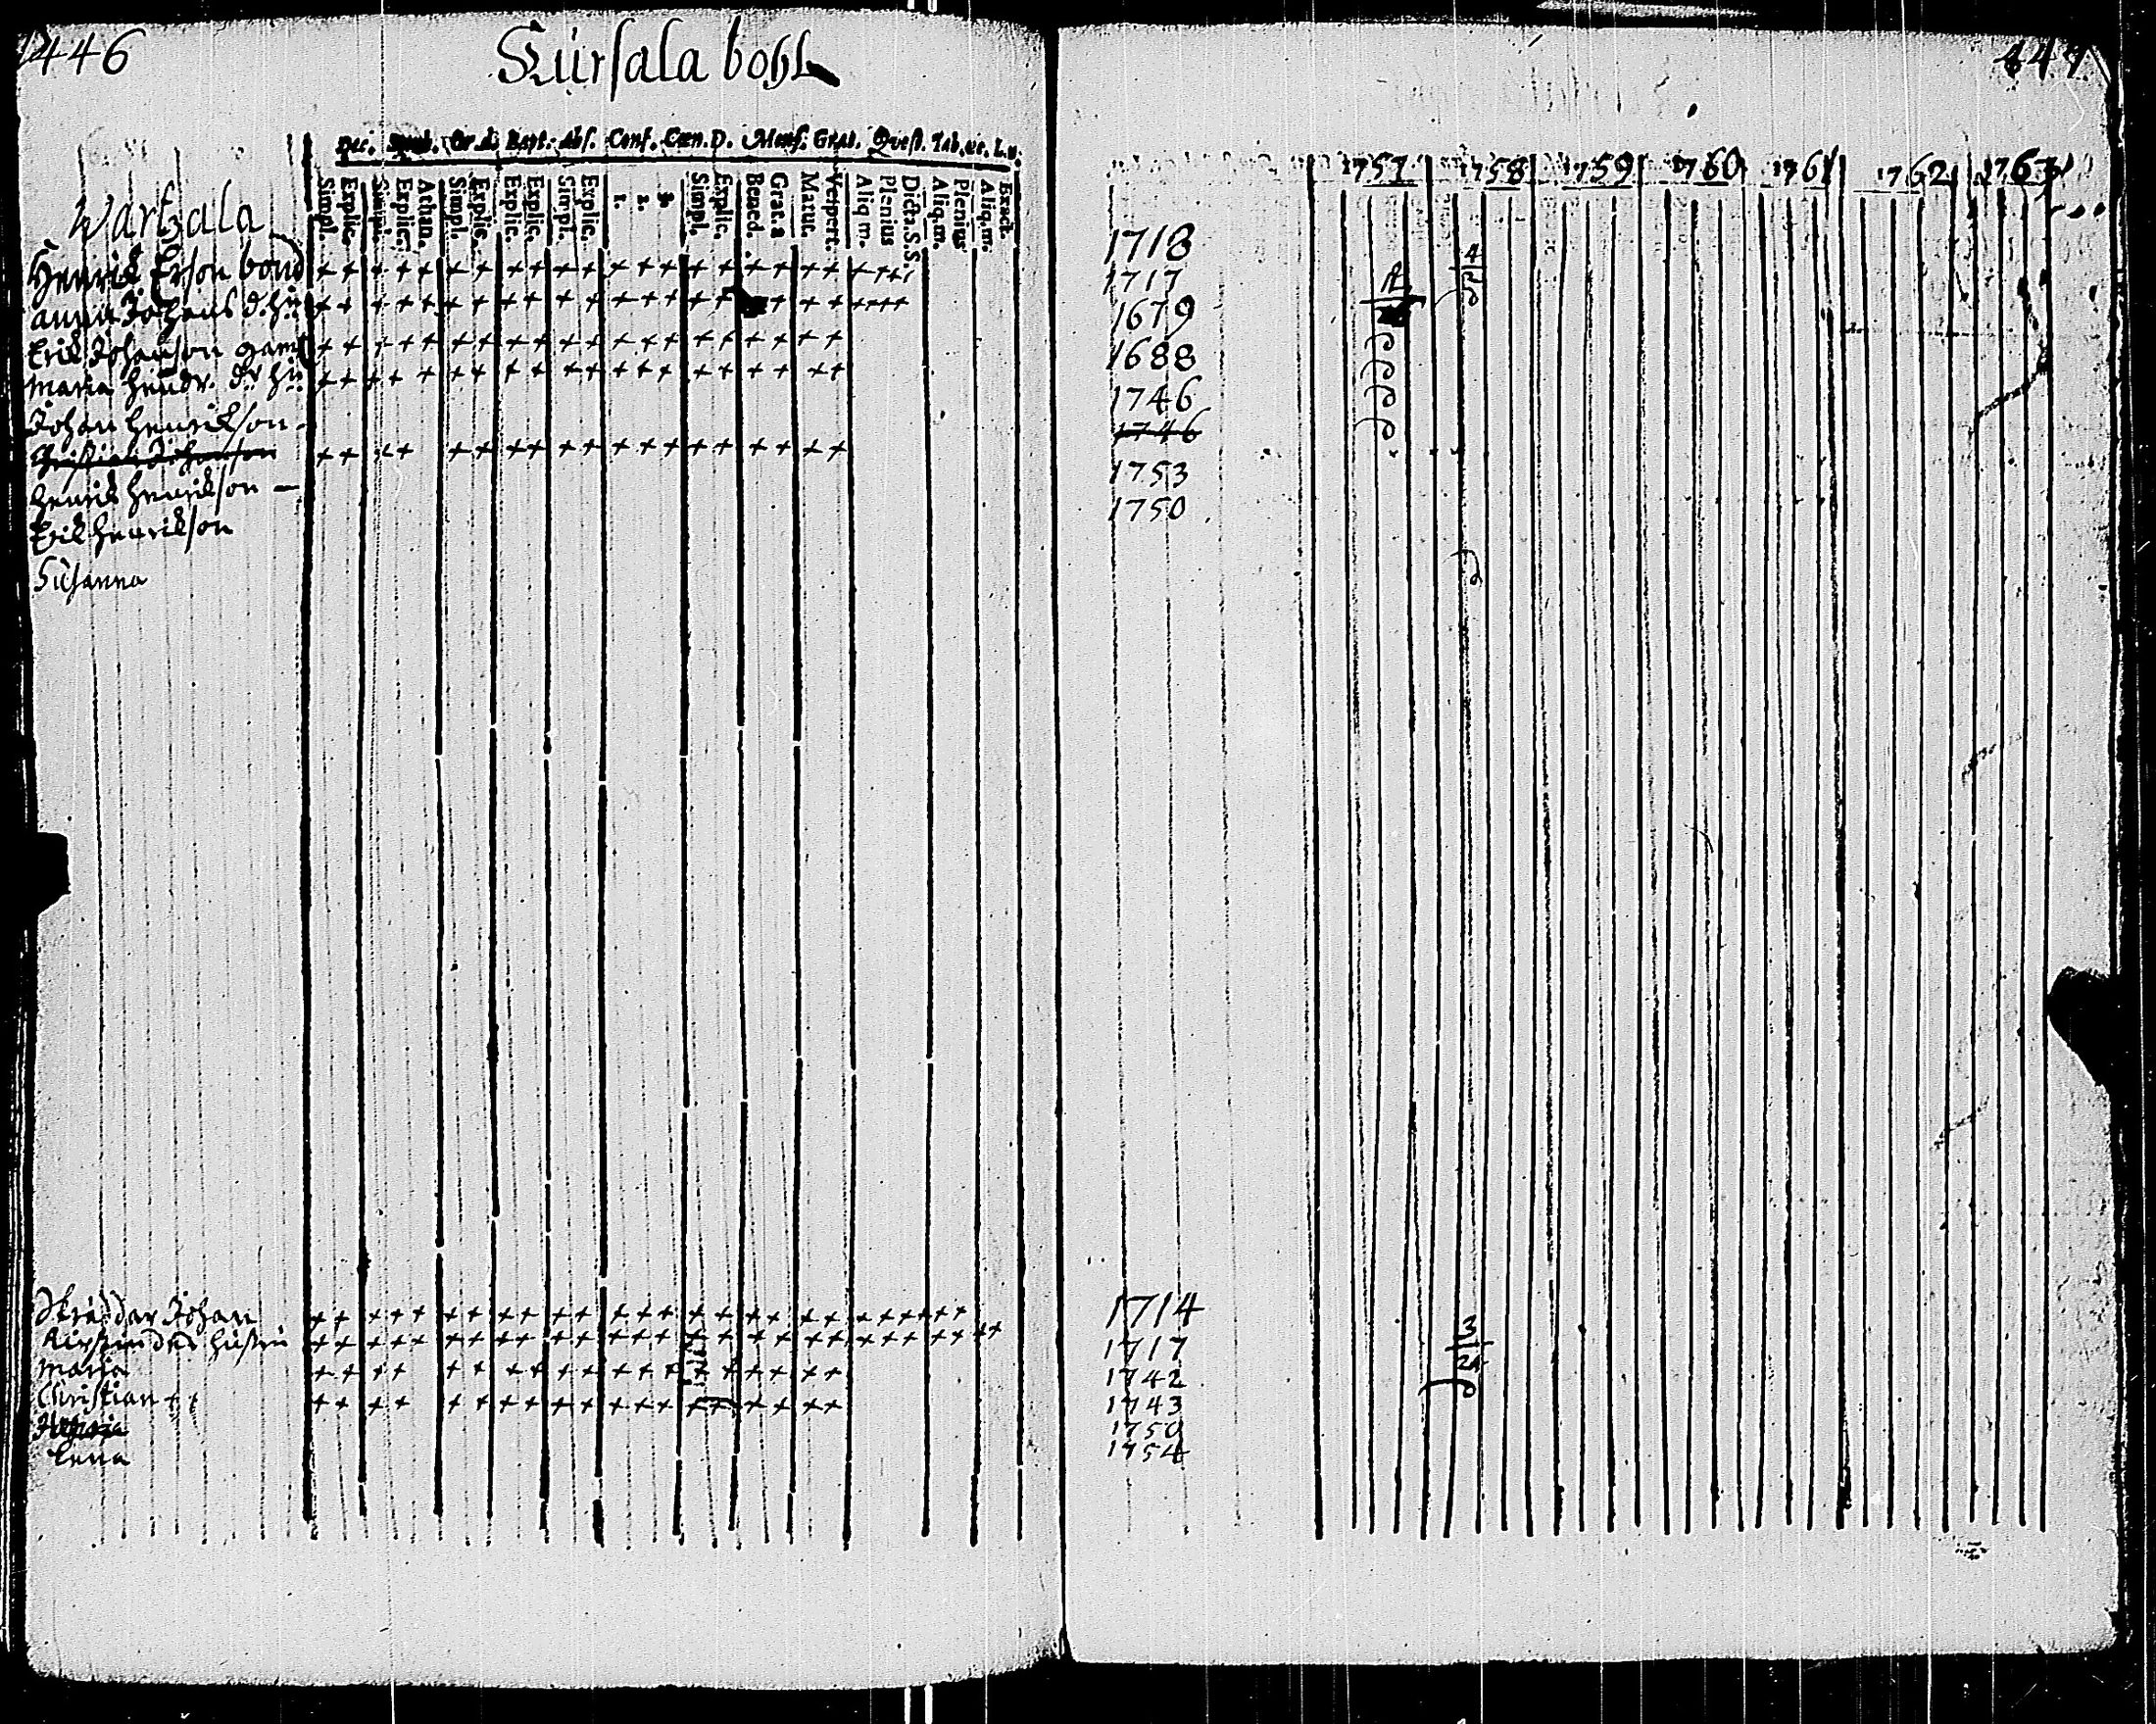 446
Sursala bohl
Dec. Symb. Or. d. Bapt. Abs. Conf. Cœn. D. Mens. Grat. Quest. Tab. œc. L. u.
Simpl. Explic. Simpl. Explic. Athan. Simpl. Explic. Explic. Explic. Simpl. Explic. 1. 2. 3. Simpl. Explic. Bened. Grat. a Matut. Vespert. Aliq m. Plenius Dicta. S. S. Aliq. m. Plenius Aliq. m. Exact.
Wartsala
Henrik Erson bond
Anna Johans d. hu
Erik Johanson gaml
Maria Hendr. dr hu
Johan Henrikson
Christian Johanson
Henrik Henrikson —
Erik Henrikson
Susanna
Skräddar Johan
Kirstin des hustru
Maria
Christian ++
Lena
447
1757 1758 1759 1760 1761 1762 1763
1718
1717
1679
1688
1746
1746
1753
1750
1714
1717
1742
1743
1750
1754